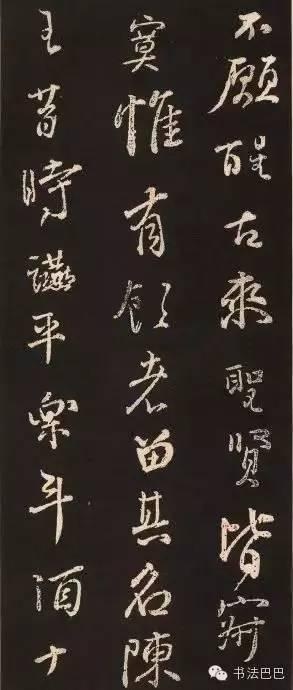 不願醒古來聖賢皆寂
寞惟有飲者留其名陳
王昔時讌平樂斗酒十
书法巴巴